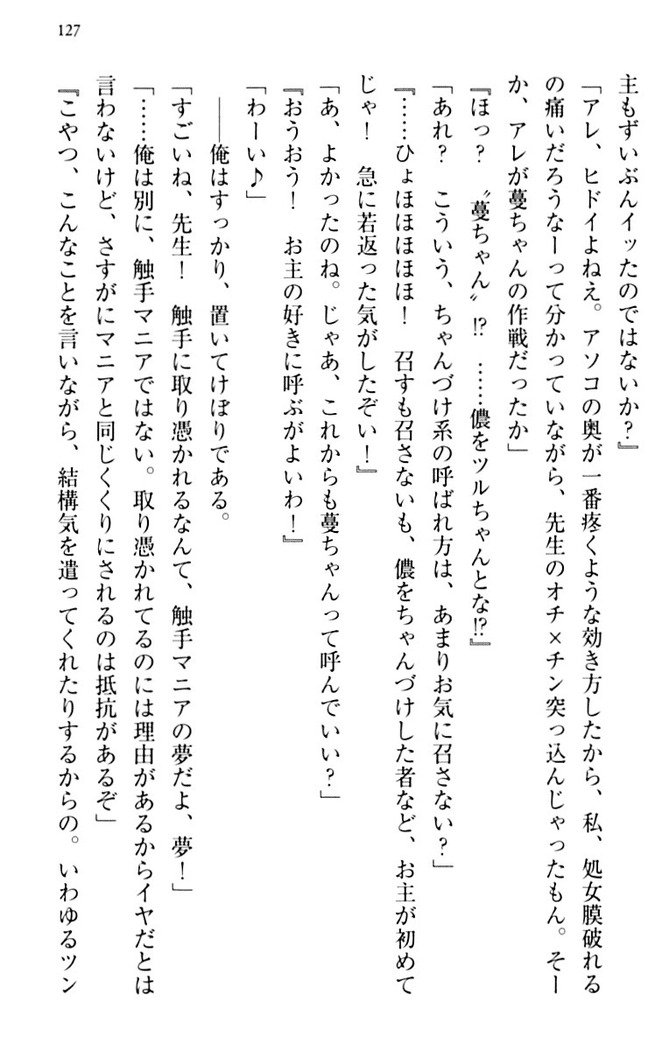 127
主もずいぶんイッたのではないか？』
「アレ、ヒドイよねえ。アソコの奥が一番疼くような効き方したから、私、処女膜破れる
の痛いだろうなーって分かっていながら、先生のオチ×チン突っ込んじゃったもん。そー
か、アレが蔓ちゃんの作戦だったか」
『ほっ？　〝蔓ちゃん〟⁉　……儂をツルちゃんとな⁉』
「あれ？　こういう、ちゃんづけ系の呼ばれ方は、あまりお気に召さない？」
『……ひょほほほほ！　召すも召さないも、儂をちゃんづけした者など、お主が初めて
じゃ！　急に若返った気がしたぞい！』
「あ、よかったのね。じゃあ、これからも蔓ちゃんって呼んでいい？」
『おうおう！　お主の好きに呼ぶがよいわ！』
「わーい♪」
――俺はすっかり、置いてけぼりである。
「すごいね、先生！　触手に取り憑かれるなんて、触手マニアの夢だよ、夢！」
「……俺は別に、触手マニアではない。取り憑かれてるのには理由があるからイヤだとは
言わないけど、さすがにマニアと同じくくりにされるのは抵抗があるぞ」
『こやつ、こんなことを言いながら、結構気を遣ってくれたりするからの。いわゆるツン